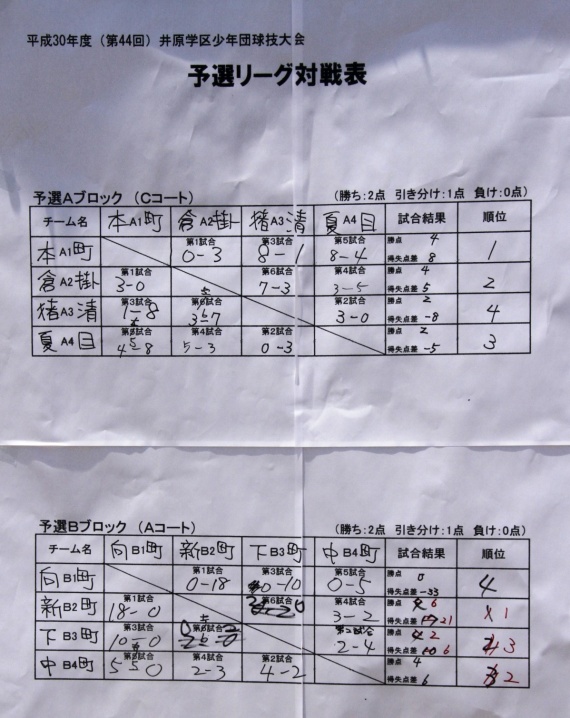 平成30年度（第44回）井原学区少年団球技大会
予選リーグ対戦表
予選Aブロック（Cコート） （勝ち:2点 引き分け:1点 負け:0点）
チーム名 本A1町 倉A2掛 猪A3清 夏A4目 試合結果 順位
本A1町 第1試合 0-3 第3試合 8-1 第5試合 8-4 勝点 4 得失点差 8 1
倉A2掛 第1試合 3-0 第6試合 7-3 第4試合 3-5 勝点 4 得失点差 5 2
猪A3清 第3試合 1-8 3-7 第2試合 3-0 勝点 2 得失点差 -8 4
夏A4目 4-8 第4試合 5-3 第2試合 0-3 勝点 2 得失点差 -5 3
予選Bブロック（Aコート） （勝ち:2点 引き分け:1点 負け:0点）
チーム名 向B1町 新B2町 下B3町 中B4町 試合結果 順位
向B1町 第1試合 0-18 第3試合 0-10 第5試合 0-5 勝点 0 得失点差 -33 4
新B2町 第1試合 18-0 第6試合 第4試合 3-2 勝点 6 得失点差 21 1
下B3町 第3試合 10-0 第2試合 2-4 勝点 2 得失点差 6 3
中B4町 5 0 第4試合 2-3 第2試合 4-2 勝点 4 得失点差 6 2